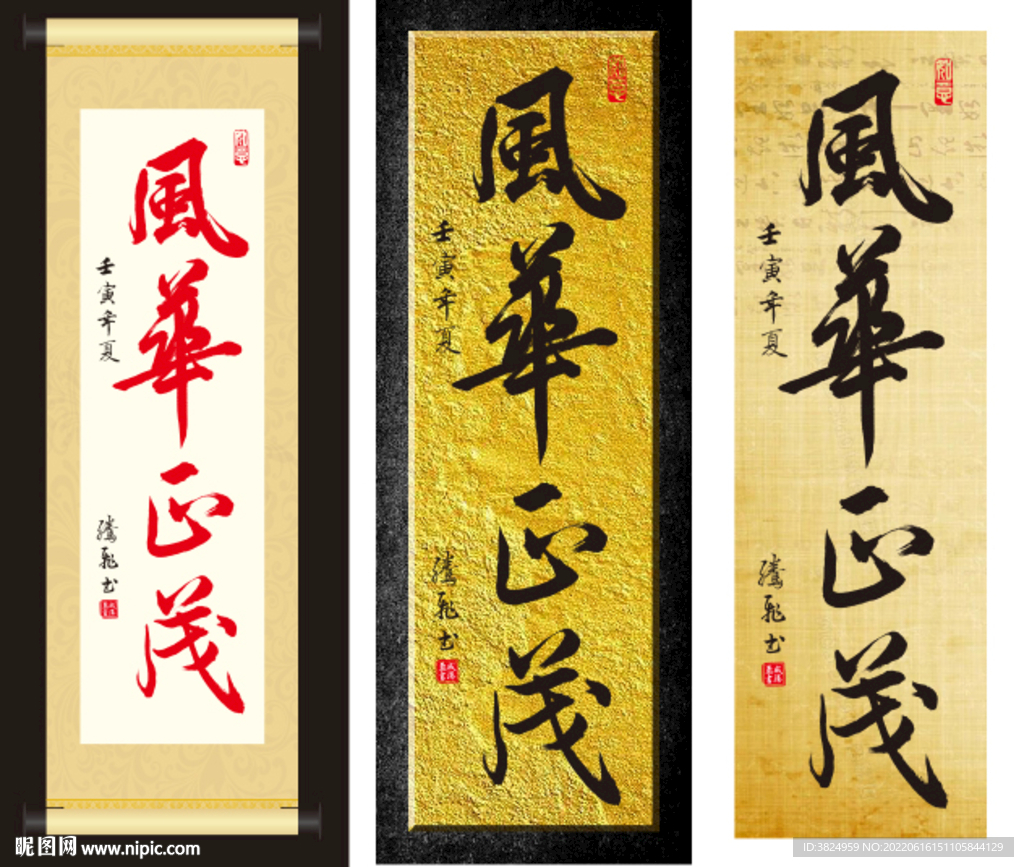 風華正茂
壬寅年夏
騰飛书
風華正茂
壬寅年夏
騰飛书
風華正茂
壬寅年夏
騰飛书
昵图网 www.nipic.com
ID:3824959 NO:20220616151105844129